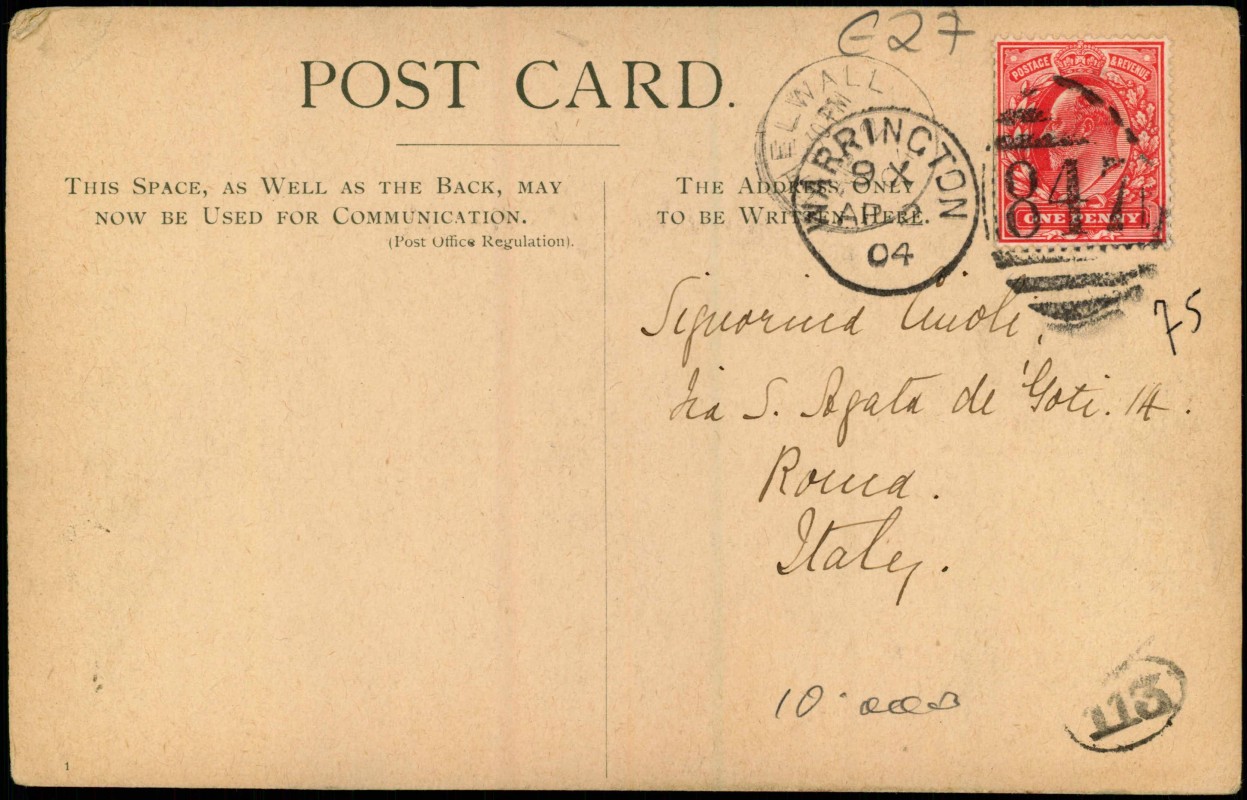 E27
POST CARD.
THIS SPACE, AS WELL AS THE BACK, MAY
NOW BE USED FOR COMMUNICATION.
(Post Office Regulation).
THE ADDRESS ONLY
TO BE WRITTEN HERE.
ELWALL
PM
WARRINGTON
9 X
AP
04
POSTAGE & REVENUE
ONE PENNY
847
75
Signorina
Via S. Agata de' Goti. 14.
Roma.
Italy.
10.000
113
1